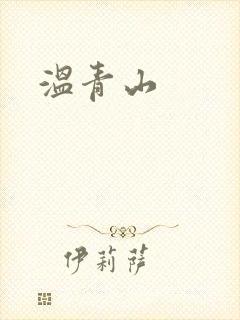 温青山
伊莉萨